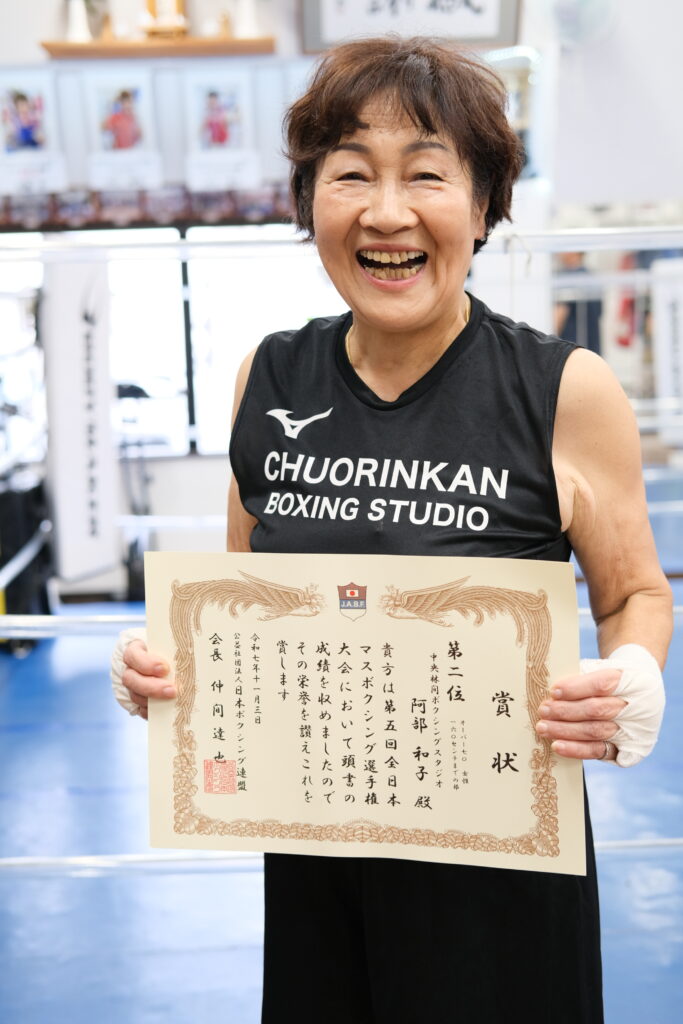 CHUORINKAN
BOXING STUDIO
J.A.B.F
賞状
第二位
オーバー七〇 女性
一六〇センチまでの部
中央林間ボクシングスタジオ
阿部 和子 殿
貴方は第五回全日本
マスボクシング選手権
大会において頭書の
成績を収めましたので
その栄誉を讃えこれを
賞します
令和七年十一月三日
公益社団法人日本ボクシング連盟
会長 仲間達也